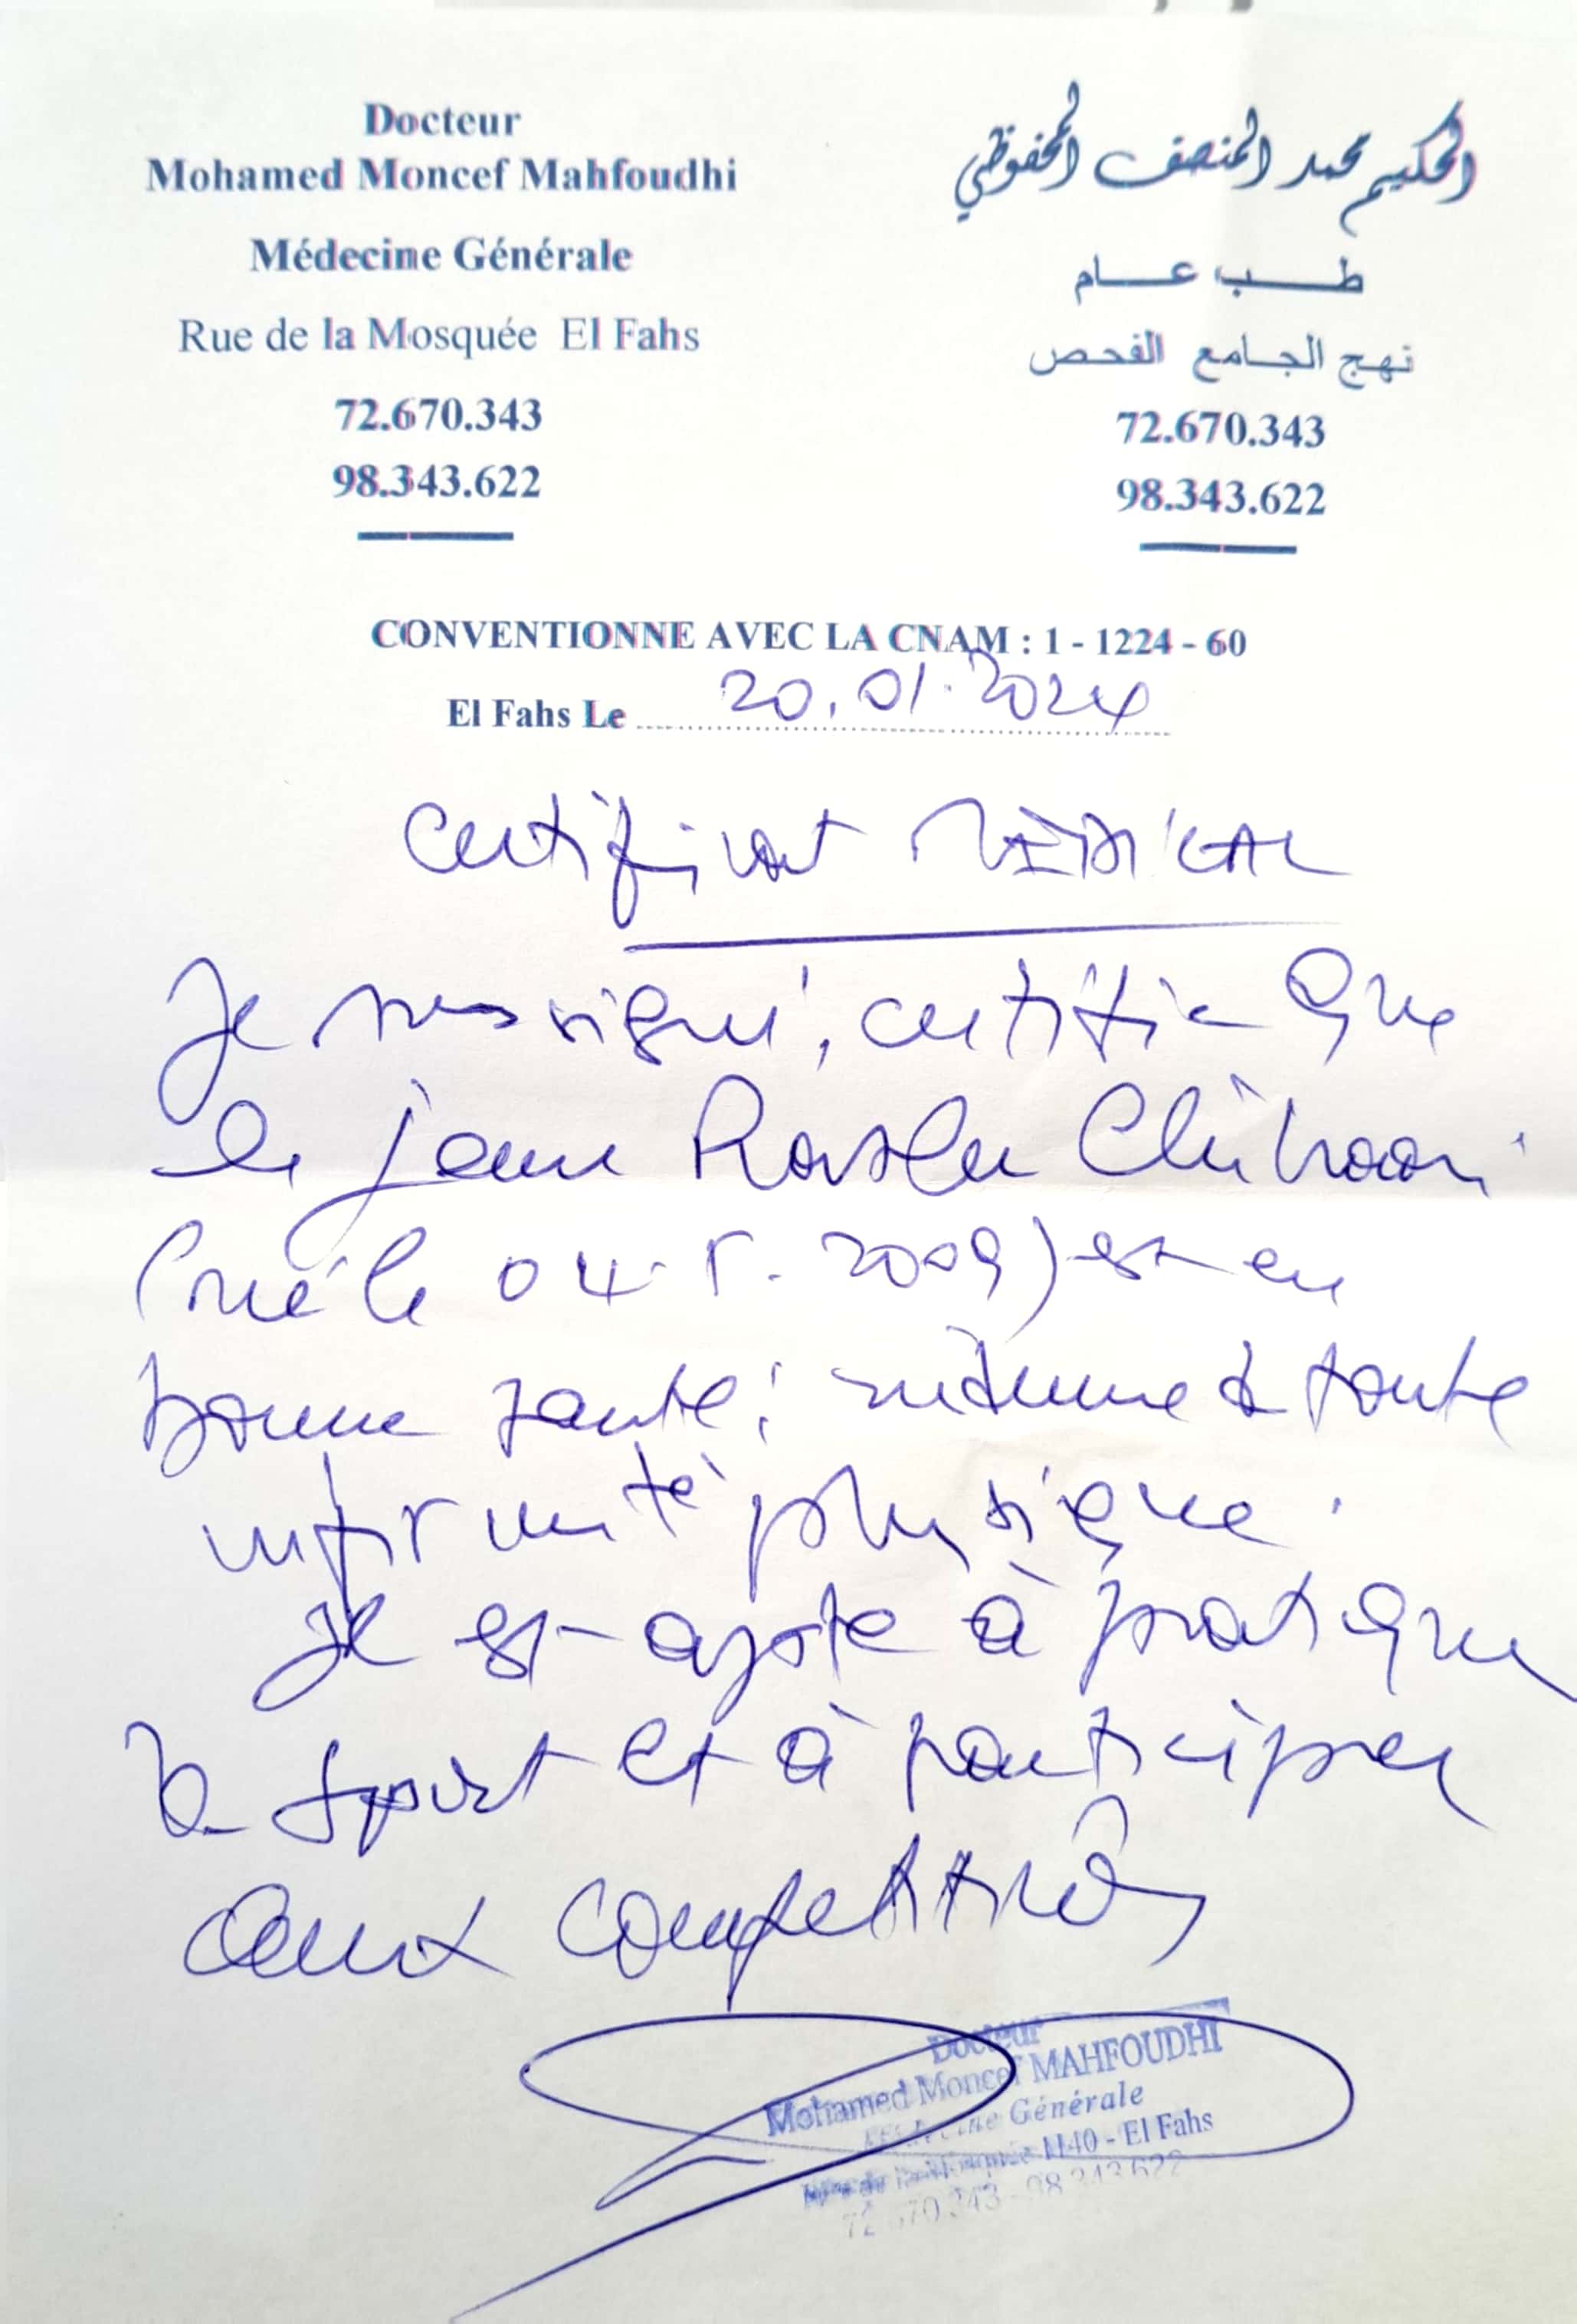 Docteur
Mohamed Moncef Mahfoudhi
Médecine Générale
Rue de la Mosquée El Fahs
72.670.343
98.343.622
الحكيم محمد المنصف المحفوظي
طب عام
نهج الجامع الفحص
72.670.343
98.343.622
CONVENTIONNE AVEC LA CNAM : 1 - 1224 - 60
El Fahs Le 20.01.2024
Certificat MÉDICAL
Je soussigné, certifie que
le jeune
(né le 04.5.2009) est en
bonne santé; indemne de toute
infirmité physique.
Il est apte à pratiquer
le sport et à participer
aux compétitions
Docteur
Mohamed Moncef MAHFOUDHI
Médecine Générale
Rue de la Mosquée 1140 - El Fahs
72 670 343 - 98 343 622